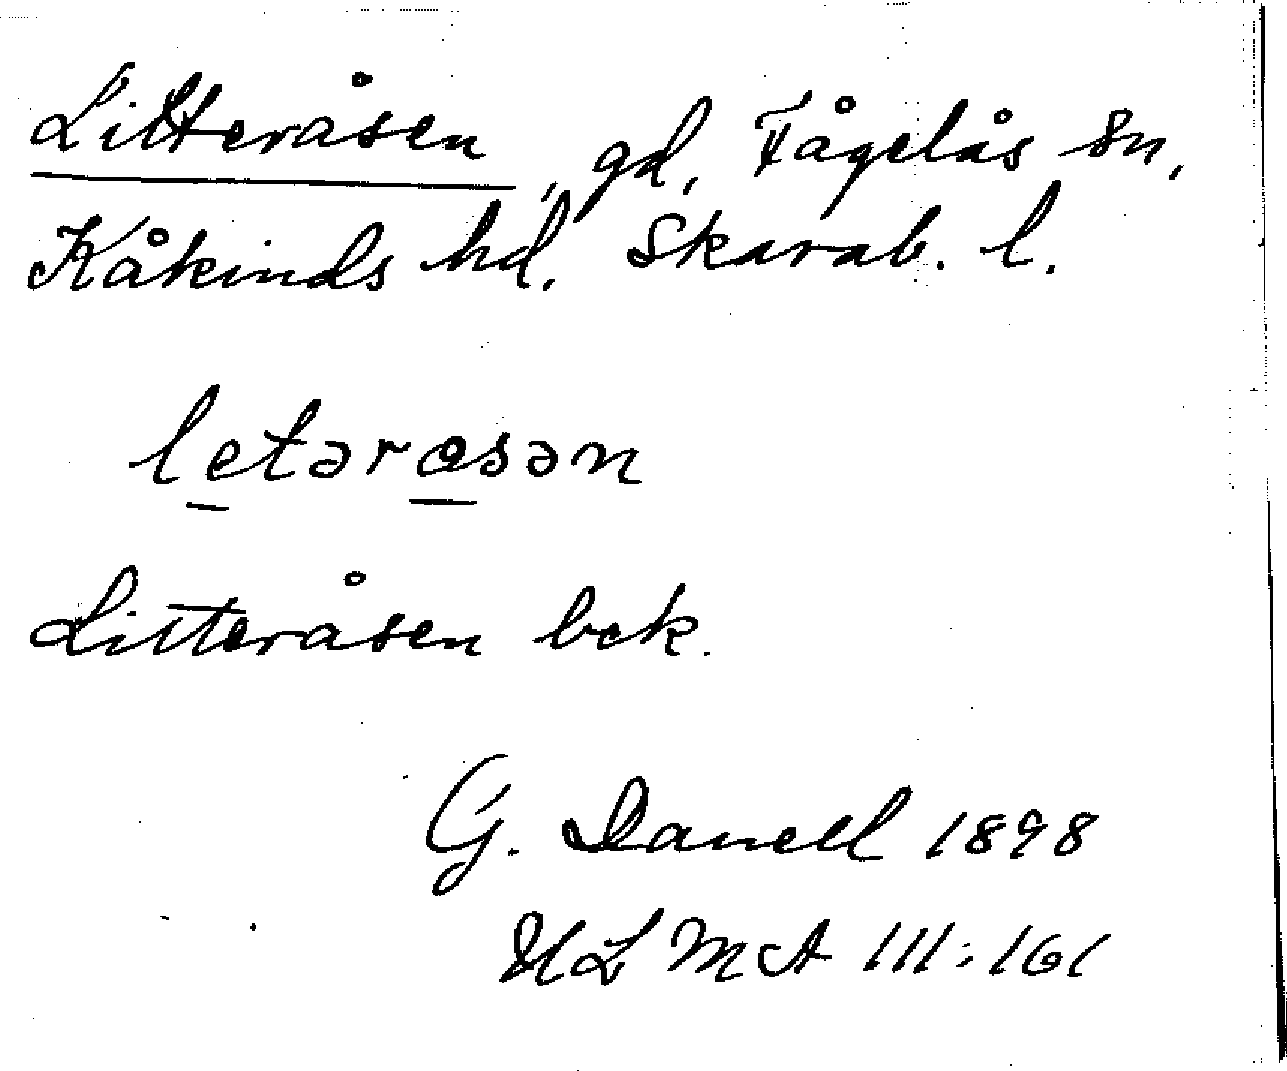 Litteråsen, gd, Fågelås sn,
Kåkinds hd. Skarab. l.
letərasən
Litteråsen bek.
G. Danell 1898
ULMA 111:161